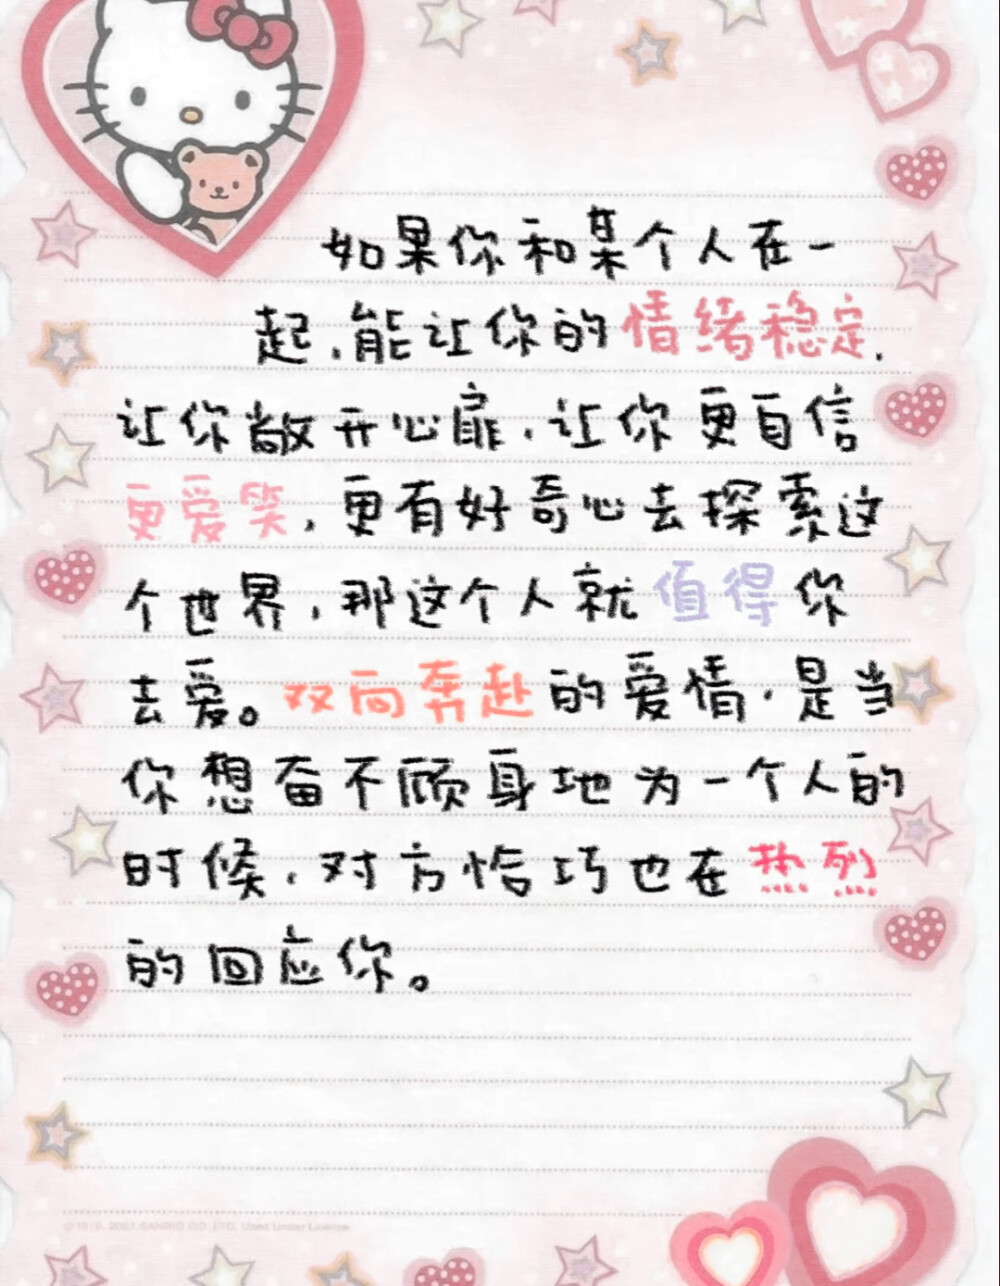 如果你和某个人在一
起,能让你的情绪稳定,
让你敞开心扉,让你更自信
更爱笑,更有好奇心去探索这
个世界,那这个人就值得你
去爱。双向奔赴的爱情,是当
你想奋不顾身地为一个人的
时候,对方恰巧也在热烈
的回应你。
SANRIO CO., LTD. Used Under License